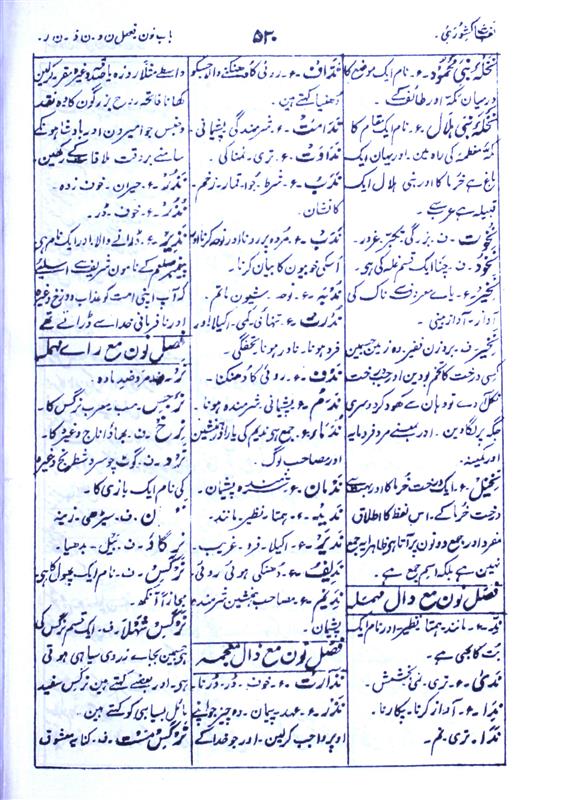 لغت کشوری
۵۲۰
باب نون فصل ن و۔ ن ذ۔ ن ر۔
نخلۂ بنی محمود۔ ع۔ نام ایک موضع کا
درمیان مکہ اور طائف کے۔
نخلۂ بنی ہلال۔ ع۔ نام ایک مقام کا
مکہ معظمہ کی راہ مین۔ اور یہان ایک
باغ ہے خرما کا اور بنی ہلال ایک
قبیلہ ہے عرب سے۔
نخوت۔ ف۔ بزرگی تکبر۔ غرور۔
نخود۔ ف۔ چنا ایک قسم غلہ کی ہی۔
نخیر۔ ع۔ یاے معروف سے ناک کی
آواز۔ آواز بینی۔
نخیر۔ ف۔ بروزن نفیر۔ وہ زمین جسمین
کسی درخت کا تخم بودین اور جب درخت
نکل آدے تو وہان سے کھود کر دوسری
جگہ پر لگا دین۔ اور بمعنے مرد فرومایہ
اور کمینہ۔
نخیل۔ ع۔ ایک درخت خرما کا اور بہت سے
درخت خرما کے۔ اس لفظ کا اطلاق
مفرد اور جمع دونون پر آتا ہی ظاہرا یہ جمع
نہین ہے بلکہ اسم جمع ہے۔
فصل نون مع دال مہملہ
ند۔ ع۔ مانند۔ ہمتا۔ نظیر۔ اور نام ایک
بُت کا بھی ہے۔
ندیٰ۔ ع۔ تری۔ نمی۔ بخشش۔
ندا۔ ع۔ آواز کرنا۔ پکارنا۔
ندا۔ تری۔ نم۔
نداف۔ ع۔ روئی کا دھنکنے والا جسکو
دُھنیا کہتے ہین۔
ندامت۔ ع۔ شرمندگی پشیمانی۔
نداوت۔ ع۔ تری۔ نمناکی۔
ندب۔ ع۔ شرط۔ جوا۔ قمار۔ زخم۔
کا نشان۔
ندب۔ ع۔ مُردہ پر رونا اور نوحہ کرنا اور
اُسکی خوبیون کا بیان کرنا۔
ندبہ۔ ع۔ نوحہ۔ شیون ماتم۔
ندرت۔ ع۔ تنہائی۔ کمی۔ اکیلا اور
فرد ہونا۔ نادر ہونا۔ تحفگی۔
ندف۔ ع۔ روئی کا دھنکنا۔
ندم۔ ع۔ پشیمانی۔ شرمندہ ہونا۔
ندماو۔ ع۔ جمع ہی ندیم کی یار اور ہمنشین
اور مصاحب لوگ۔
ندمان۔ ع۔ شرمندہ پشیمان۔
ندید۔ ع۔ ہمتا۔ نظیر۔ مانند۔
ندیر۔ ع۔ اکیلا۔ فرد۔ غریب۔
ندیف۔ ع۔ دھنکی ہوئی روئی۔
ندیم۔ ع۔ مصاحب ہمنشین شرمندہ
پشیمان۔
فصل نون مع ذال معجمہ
نذارت۔ ع۔ خوف۔ ڈر۔ ڈرنا۔
نذر۔ ع۔ عہد۔ پیمان۔ وہ چیز جو اپنے
اوپر واجب کرلین۔ اور جو خدا کے
واسطے مثلاً روزہ یا صدقہ وغیرہ مقرر کرلین
کھانا فاتحہ روح بزرگون کا وہ نقد
و جنس جو امیرون اور بادشاہون کے
سامنے بروقت ملاقات کے رکھین۔
نذر۔ ع۔ حیران۔ خوف زدہ۔
نذر۔ ع۔ خوف۔ ڈر۔
نذیر۔ ع۔ ڈرانے والا اور ایک نام ہی
پیغمبر صلعم کے نامون شریف سے اسلیے
کہ آپ اپنی امت کو عذاب دوزخ وغیرہ
اور نافرمانی خدا سے ڈراتے تھے
فصل نون مع راے مہملہ
نر۔ مرد ضد مادہ۔
نرجس۔ معرب نرگس کا۔
نرخ۔ ف۔ بھاؤ اناج وغیرہ کا۔
نرد۔ ف۔ گوٹ چوسر و شطرنج وغیرہ
کی نام ایک بازی کا۔
ن۔ ف۔ سیڑھی۔ زینہ
نرگاؤ۔ ف۔ بیل۔ بردھیا۔
نرگس۔ ف۔ نام ایک پھول کا ہی
مجازاً آنکھ۔
نرگس شہلا۔ ف۔ ایک قسم نرگس کی
جسمین بجاے زردی سیاہی ہوتی
ہی۔ اور بعضے کہتے ہین نرگس سفید
مائل بسیاہی کو کہتے ہین۔
نرگس مست۔ ف۔ کنایہ معشوق